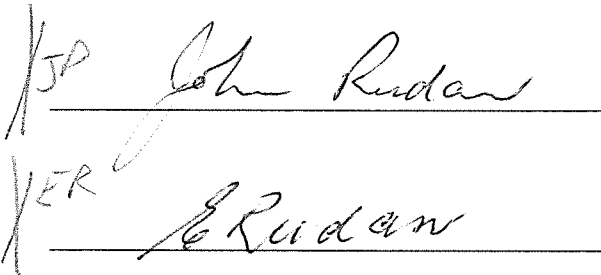 X JP John Rudan
X ER E Rudan